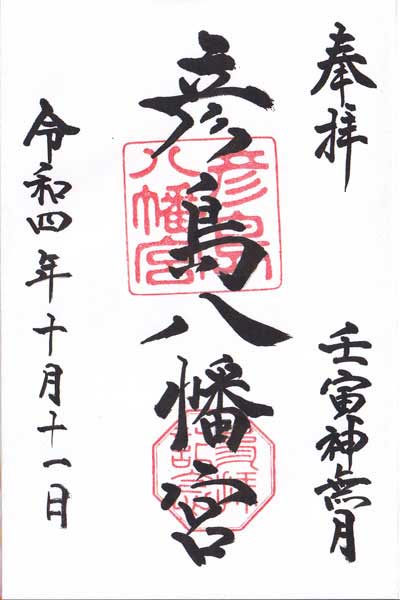 奉拝
壬寅神無月
彦島八幡宮
彦島
八幡宮
令和四年十月十一日